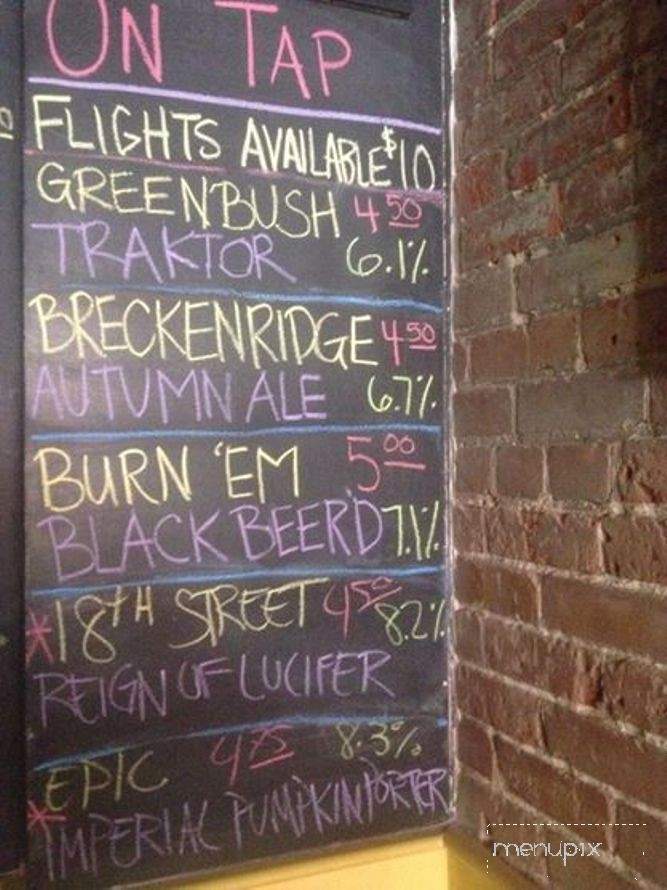 ON TAP
FLIGHTS AVAILABLE $10
GREENBUSH 4 50
TRAKTOR 6.1%
BRECKENRIDGE 4 50
AUTUMN ALE 6.7%
BURN 'EM 5 00
BLACK BEER'D 7.1%
*18TH STREET 4 50 8.2%
REIGN OF LUCIFER
EPIC 4 75 8.3%
*IMPERIAL PUMPKIN PORTER
menupix